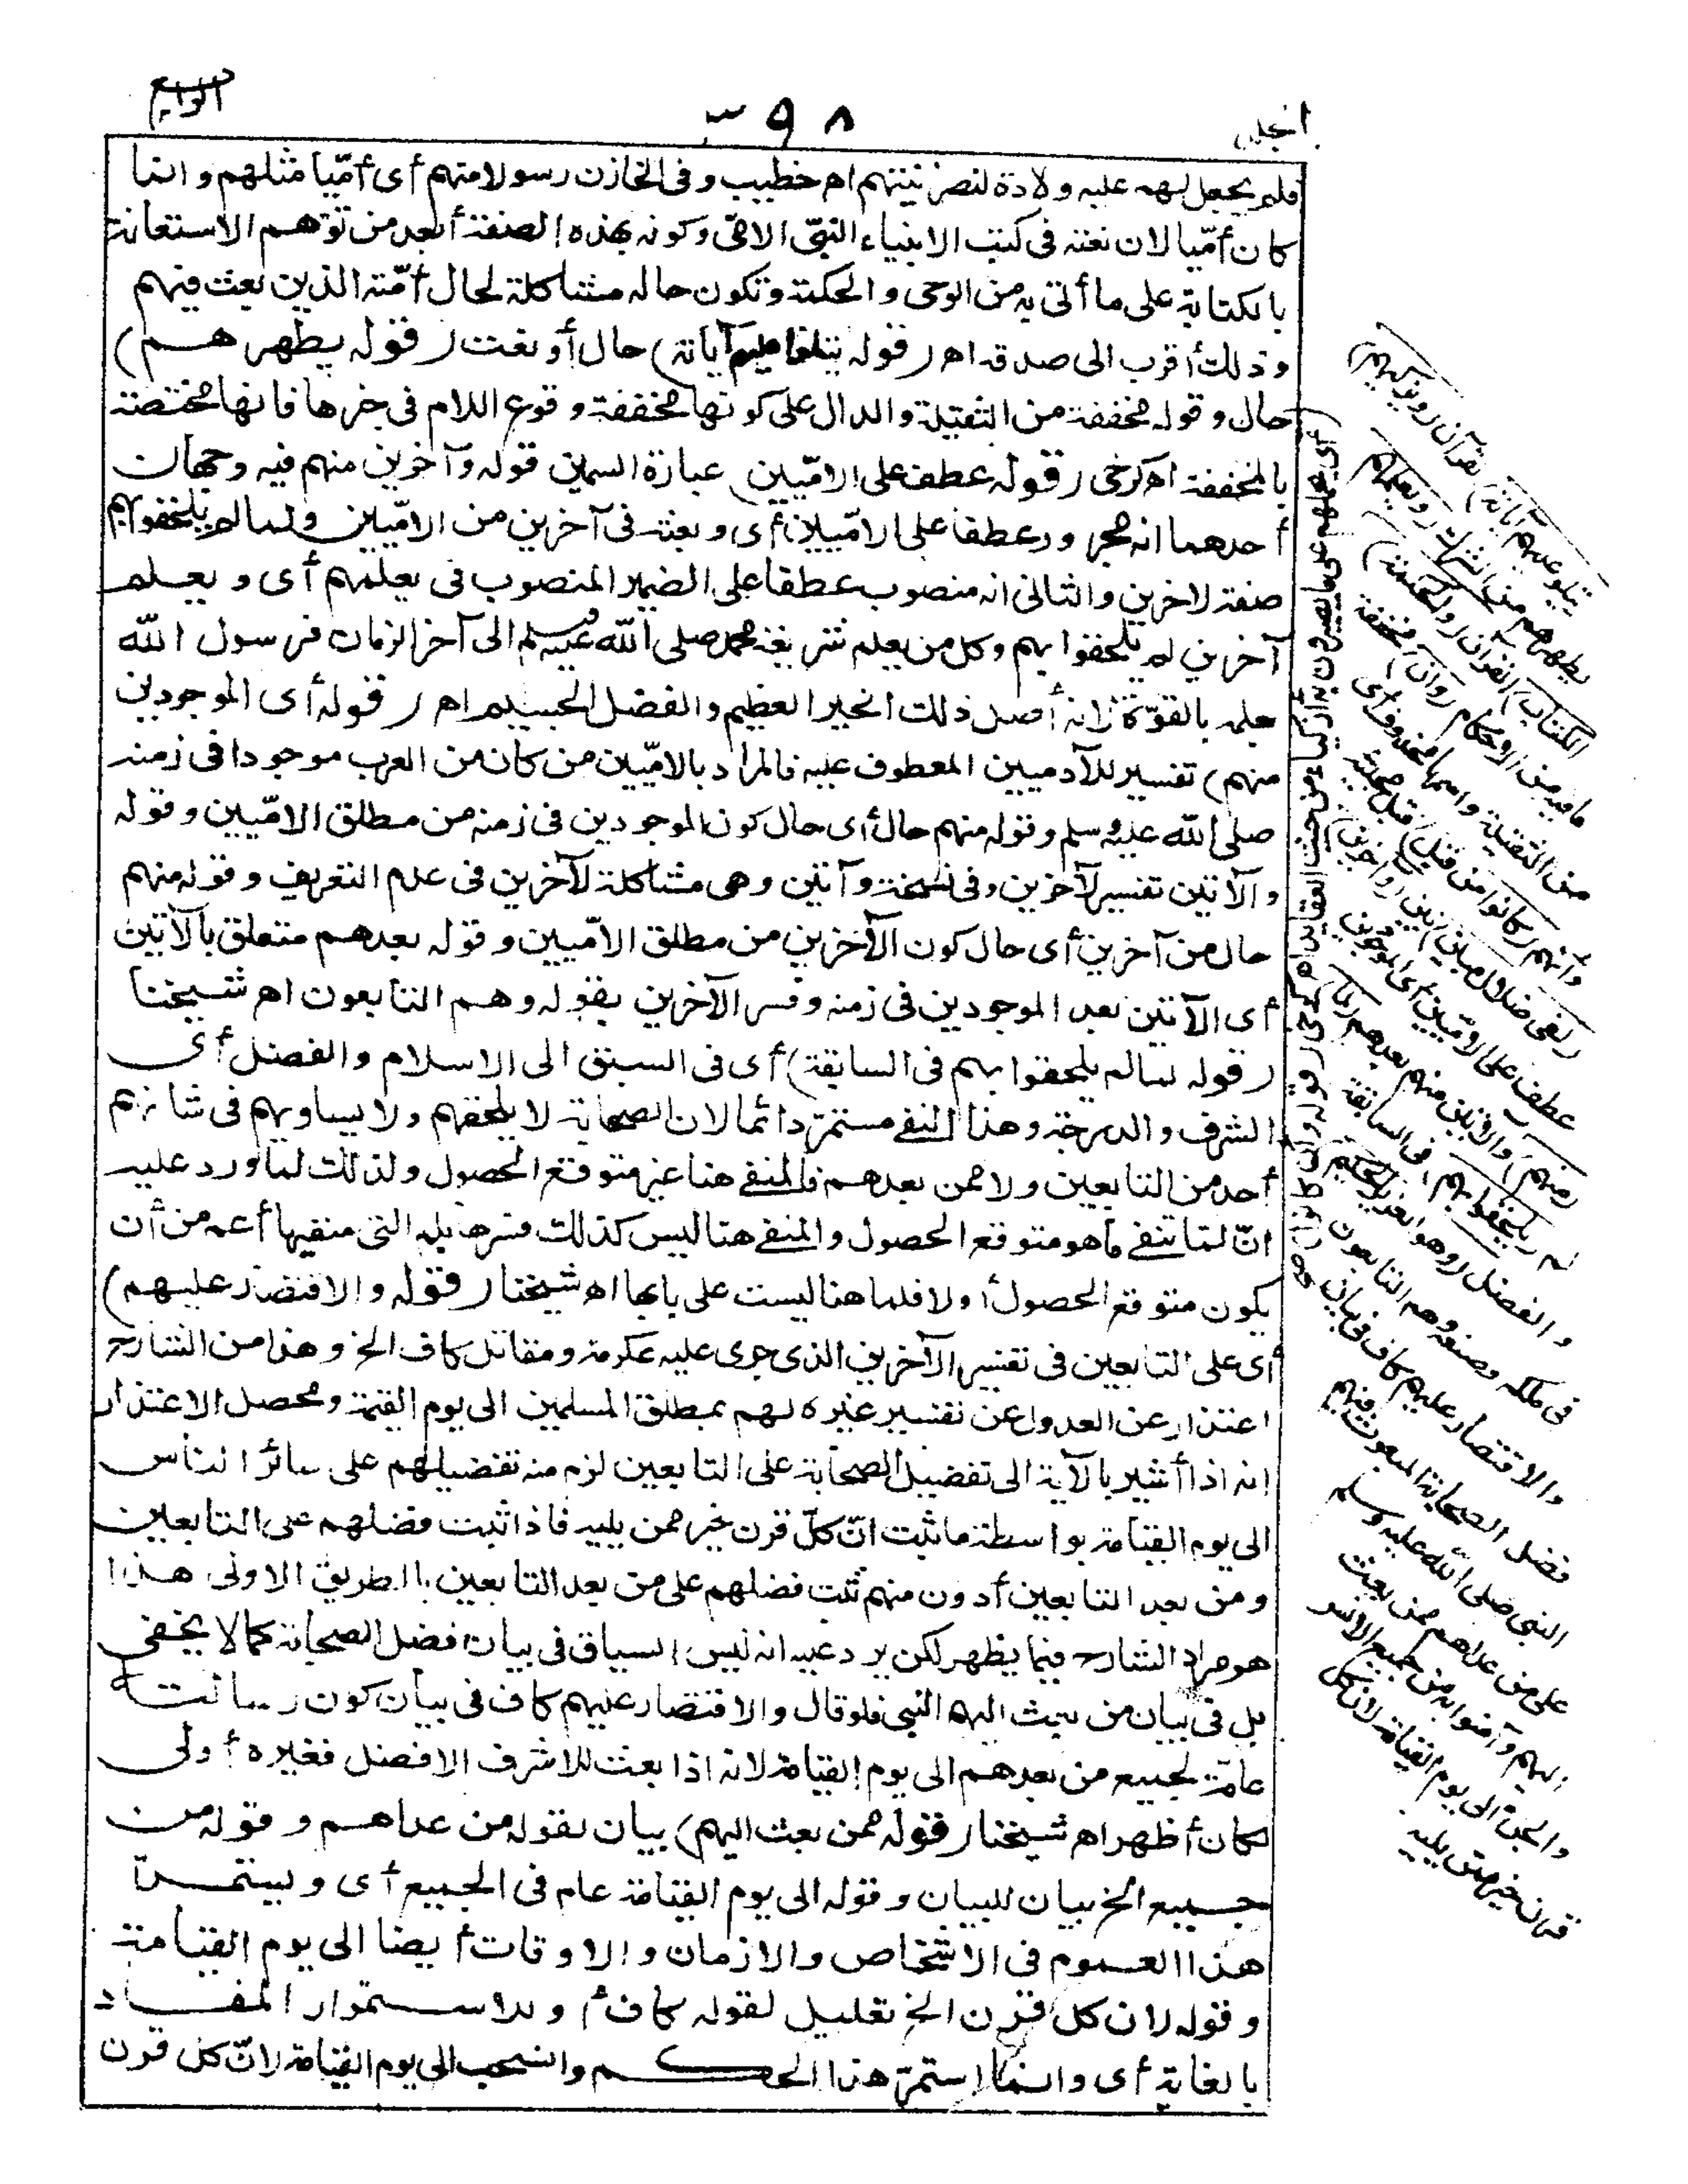 الرابع
٣٩٨
الجمل
فلم يجعل لهم عليه ولادة لنصرانيتهم اه خطيب وفى الخازن رسولا منهم أى أمّيا مثلهم وانما
كان أمّيا لان نعته فى كتب الانبياء النبىّ الامىّ وكونه بهذه الصفة أبعد من توهم الاستعانة
بالكتابة على ما أتى به من الوحى والحكمة وتكون حاله مشاكلة لحال أمّته الذين بعث فيهم
وذلك أقرب الى صدقه اه (قوله يتلوا عليهم آياته) حال أو نعت (قوله يطهرهم)
حال وقوله مخففة من الثقيلة والدال على كونها مخففة وقوع اللام فى خبرها فانها مختصة
بالمخففة اه كرخى (قوله عطف على الامّيين) عبارة السمين قوله وآخرين منهم فيه وجهان
أحدهما انه مجرور عطفا على الامّيين أى وبعث فى آخرين من الامّيين ولما لم يلحقوا بهم
صفة لآخرين والثانى انه منصوب عطفا على الضمير المنصوب فى يعلمهم أى ويعلم
آخرين لم يلحقوا بهم وكل من يعلم شريعة محمد صلى الله عليه وسلم الى آخر الزمان فرسول الله
معلمه بالقوّة لانه أصل ذلك الخير العظيم والفضل الجسيم اه (قوله أى الموجودين
منهم) تفسير للآدميين المعطوف عليه فالمراد بالامّيين من كان من العرب موجودا فى زمنه
صلى الله عليه وسلم وقوله منهم حال أى حال كون الموجودين فى زمنه من مطلق الامّيين وقوله
والآتين تفسير لآخرين وفى نسخة وآتين وهى مشاكلة لآخرين فى عدم التعريف وقوله منهم
حال من آخرين أى حال كون الآخرين من مطلق الامّيين وقوله بعدهم متعلق بالآتين
أى الآتين بعد الموجودين فى زمنه وفسر الآخرين بقوله وهم التابعون اه شيخنا
(قوله لما لم يلحقوا بهم فى السابقة) أى فى السبق الى الاسلام والفضل أى
الشرف والدرجة وهذا النفى مستمرّ دائما لان الصحابة لا يلحقهم ولا يساويهم فى شأنهم
أحد من التابعين ولا ممن بعدهم فالمنفى هنا غير متوقع الحصول ولذلك لما ورد عليه
انّ لما تنفى ما هو متوقع الحصول والمنفى هنا ليس كذلك فسرها بلم التى منفيها أعم من أن
يكون متوقع الحصول أولا فلما هنا ليست على بابها اه شيخنا (قوله والاقتصار عليهم)
أى على التابعين فى تفسير الآخرين الذى جرى عليه عكرمة ومقاتل كاف الخ وهذا من الشارح
اعتذار عن العدول عن تفسير غيره لهم بمطلق المسلمين الى يوم القيمة ومحصل الاعتذار
انه اذا أشير بالآية الى تفضيل الصحابة على التابعين لزم منه تفضيلهم على سائر الناس
الى يوم القيامة بواسطة ما ثبت انّ كلّ قرن خير ممن يليه فاذا ثبت فضلهم على التابعين
ومن بعد التابعين أدون منهم ثبت فضلهم على من بعد التابعين بالطريق الاولى هذا
هو مراد الشارح فيما يظهر لكن يرد عليه انه ليس السياق فى بيان فضل الصحابة كما لا يخفى
بل فى بيان من بعث اليهم النبى فلو قال والاقتصار عليهم كاف فى بيان كون رسالته
عامّة لجميع من بعدهم الى يوم القيامة لانه اذا بعث للاشرف الافضل فغيره أولى
لكان أظهر اه شيخنا (قوله ممن بعث اليهم) بيان لقوله من عداهم وقوله من
جميع الخ بيان للبيان وقوله الى يوم القيامة عام فى الجميع أى ويستمرّ
هذا العموم فى الاشخاص والازمان والاوقات أيضا الى يوم القيامة
وقوله لان كل قرن الخ تعليل لقوله كاف أو للاستمرار المفاد
بالغاية أى وانما استمرّ هذا الحكم وانسحب الى يوم القيامة لانّ كل قرن
(يتلو عليهم آياته) القرآن (ويزكيهم)
يطهرهم من الشرك (ويعلمهم
الكتاب) القرآن (والحكمة)
ما فيه من الاحكام (وان) مخففة
من الثقيلة واسمها محذوف أى
وانهم (كانوا من قبل) قبل مجيئه
(لفى ضلال مبين) بين (وآخرين)
عطف على الامّيين أى الموجودين
(منهم) والآتين منهم بعدهم (لما)
لم (يلحقوا بهم) فى السابقة
والفضل (وهو العزيز الحكيم)
فى ملكه وصنعه وهم التابعون
والاقتصار عليهم كاف فى بيان
فضل الصحابة المبعوث فيهم
النبى صلى الله عليه وسلم
على من عداهم ممن بعث
اليهم وآمنوا به من جميع الانس
والجن الى يوم القيامة لان كل
قرن خير ممن يليه